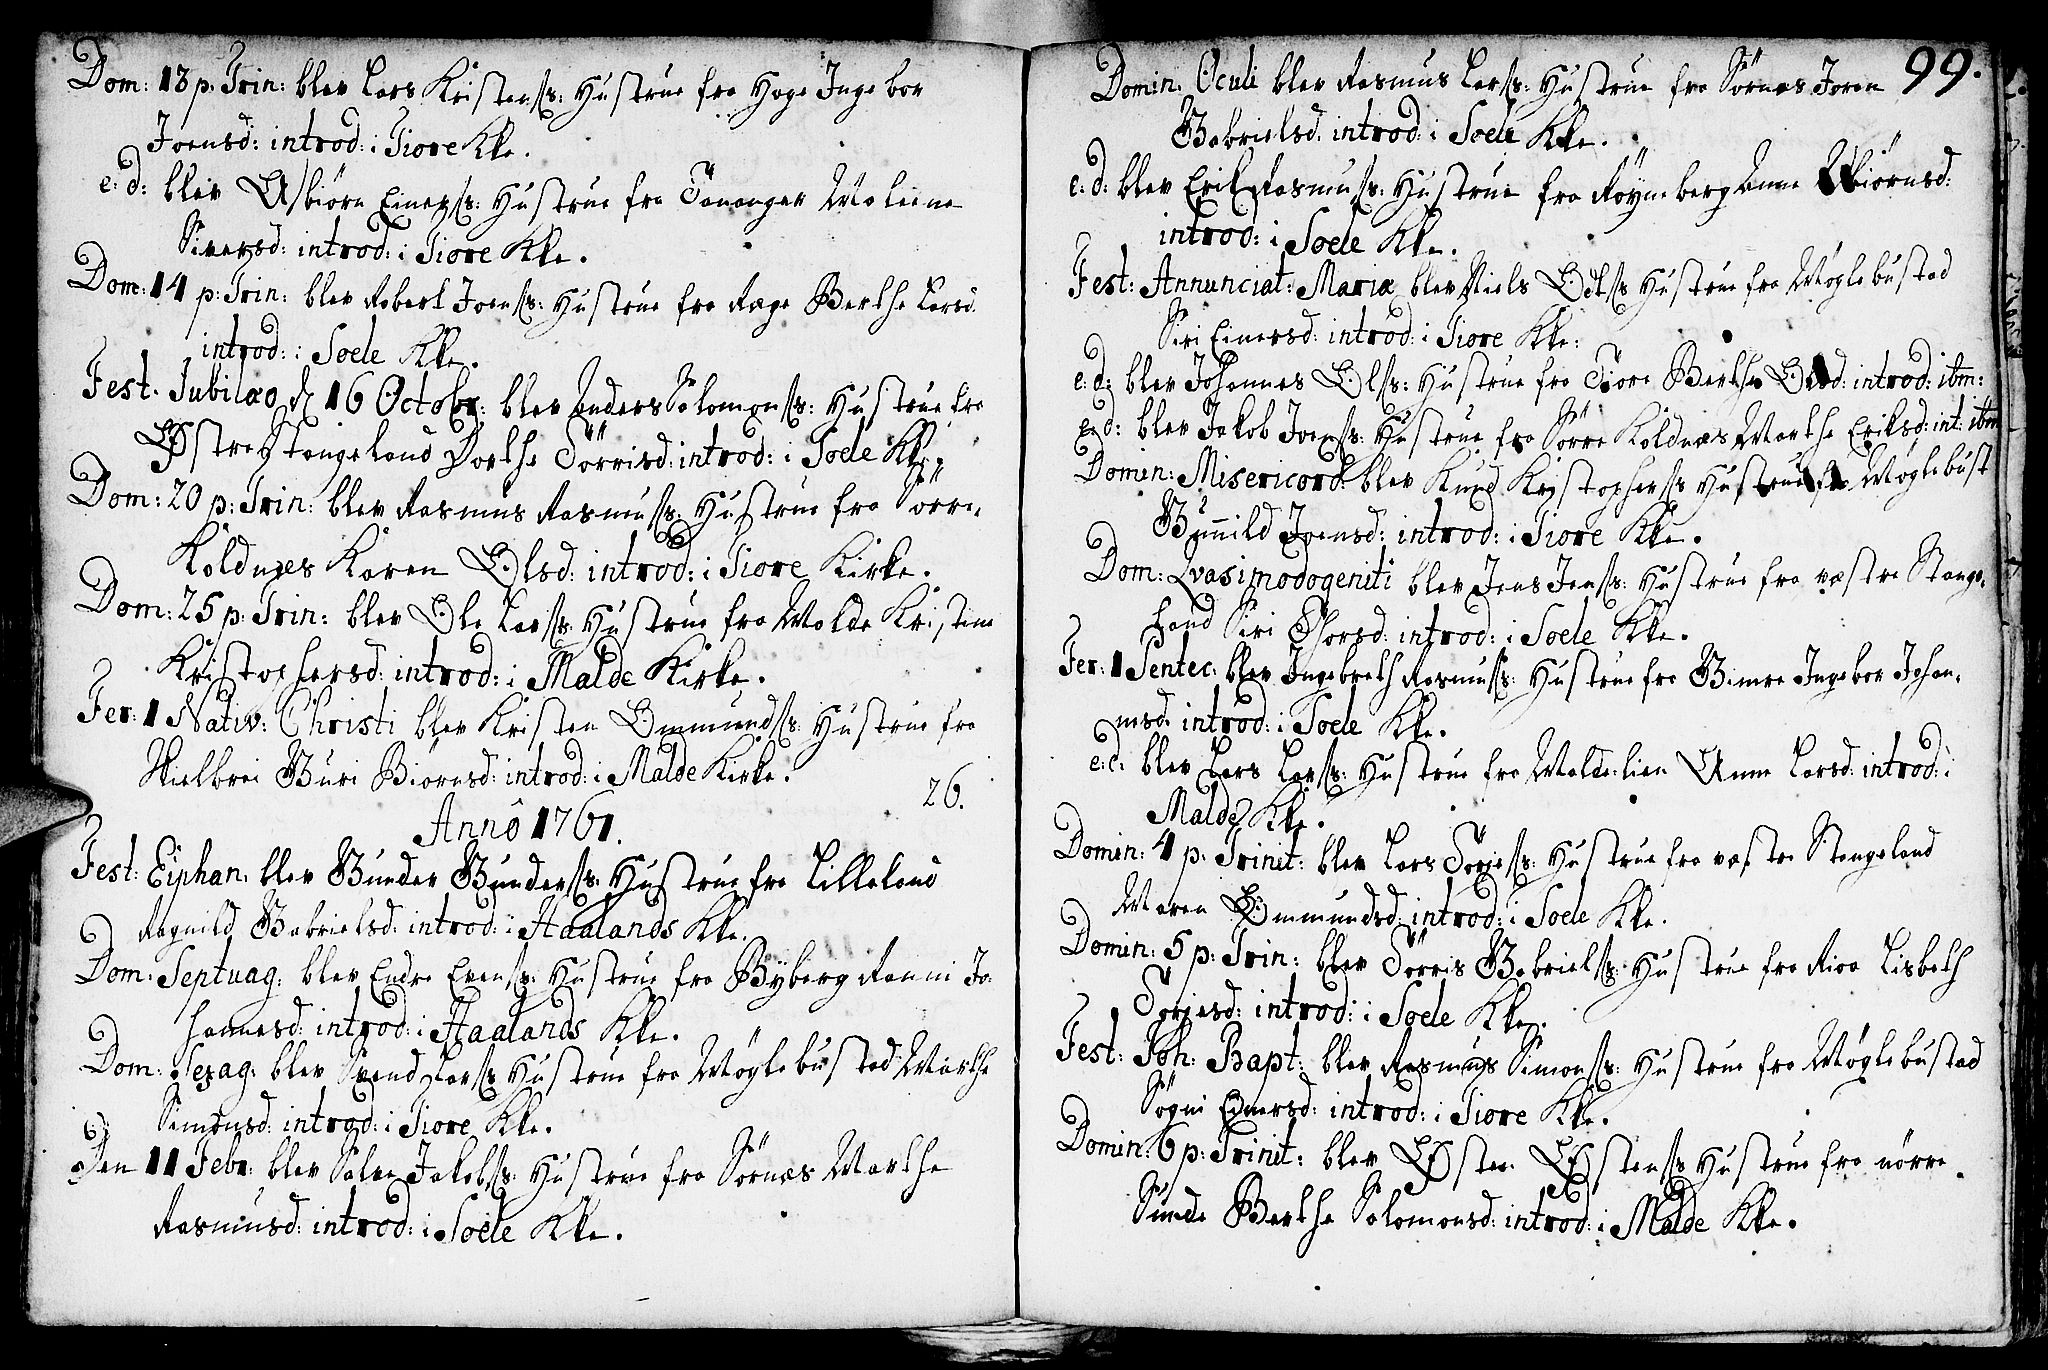 Dom: 13 p. Trin: blev Lars Kristens: Hustrue fra Hage Ingebor
Joensd: introd: i Tiore Kke.
e: d: blev Asbiørn Einers: Hustrue fra Tananger Malene
Siversd: introd: i Tiore Kke.
Dom: 14 p: Trin: blev Robert Joens: Hustrue fra Rege Berthe Larsd.
introd: i Soele Kke.
Fest. Jubilæo d 16 Octobr: blev Anders Salomons: Hustrue fra
Østre Stangeland Dorthe Törrisd: introd: i Soele Kke.
Dom: 20 p: Trin: blev Rasmus Rasmuss: Hustrue fra Sörre,
Koldnes Karen Olsd: introd: i Tiore Kirke.
Dom: 25 p: Trin: blev Ole Lars: Hustrue fra Malde Kristine
Kristophersd: introd: i Malde Kirke.
Fer: 1 Nativ: Christi blev Kristen Ommunds: Hustrue fra
Skielbrei Guri Biörnsd: introd: i Malde Kirke.
26.
Anno 1761.
Fest: Eiphan: blev Gunder Gunders: Hustrue fra Lilleland
Ragnild Gabrielsd: introd: i Haalands Kke.
Dom: Septuag: blev Endre Evens: Hustrue fra Byberg Ranni Jo-
hannesd: introd: i Haalands Kke.
Dom: Sexag: blev Svend Lars: Hustrue fra Møglebustad Marthe
Simonsd: introd: i Tiore Kke.
Den 11 Febr: blev Salve Jakobs: Hustrue fra Sörnes Marthe
Rasmusd: introd: i Soele Kke.
99.
Domin: Oculi blev Rasmus Lars: Hustrue fra Sörnes Joren
Gabrielsd. introd: i Soele Kke.
e: d: blev Erik Rasmuss: Hustrue fra Röyneberg Anne Asbiörnsd:
introd: i Soele Kke.
Fest: Annunciat: Mariæ blev Niels Ols: Hustrue fra Møglebustad
Siri Einersd: introd: i Tiore Kke:
e: d: blev Johannes Ols: Hustrue fra Tiore Berthe Olsd: introd: ibm:
e: d: blev Jakob Joens: Hustrue fra Sörre Koldnes Marthe Eriksd: int: ibm
Domin: Misericord: blev Knud Kristophers: Hustrue fra Møglebust
Gunnild Joensd: introd: i Tiore Kke.
Dom: Qvasimodogeniti blev Jens Jens: Hustrue fra vestre Stange-
land Siri Thorsd: introd: i Soele Kke.
Fer: 1 Pentec: blev Ingebreth Rasmuss: Hustrue fra Gimre Ingebor Johan-
nisd. introd: i Soele Kke.
e: d: blev Lars Lars: Hustrue fra Maldelien Anne Larsd: introd: i
Malde Kke.
Domin: 4 p: Trinit: blev Lars Törjes: Hustrue fra vestre Stangeland
Maren Ommundsd: introd: i Soele Kke.
Domin: 5 p: Trin: blev Törris Gabriels: Hustrue fra Risa Lisbeth
Törjesd: introd: i Soele Kke.
Fest: Joh: Bapt: blev Rasmus Simons: Hustrue fra Møglebustad
Sögni Einersd: introd: i Tiore Kke.
Domin: 6 p: Trinit: blev Østen Østens: Hustrue fra nörre
Sunde Berthe Salomonsd: introd: i Malde Kke.